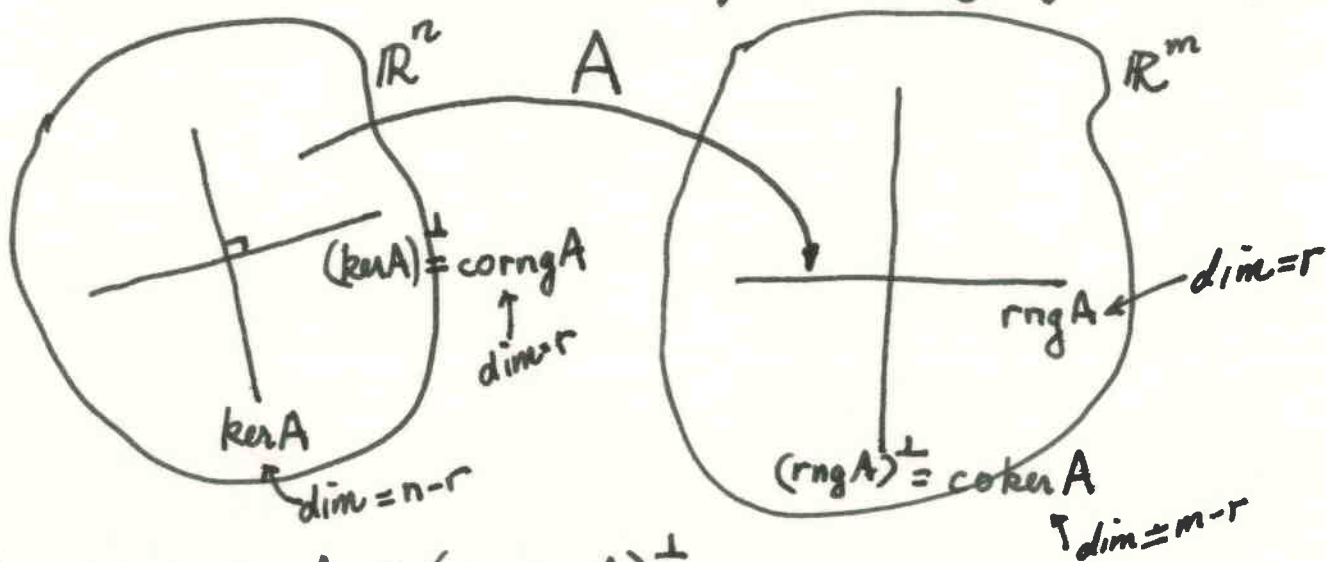 ℝⁿ
A
ℝᵐ
(kerA)^⊥ = corngA
dim=r
kerA
dim = n-r
dim=r
rngA
(rngA)^⊥ = coker A
dim = m-r